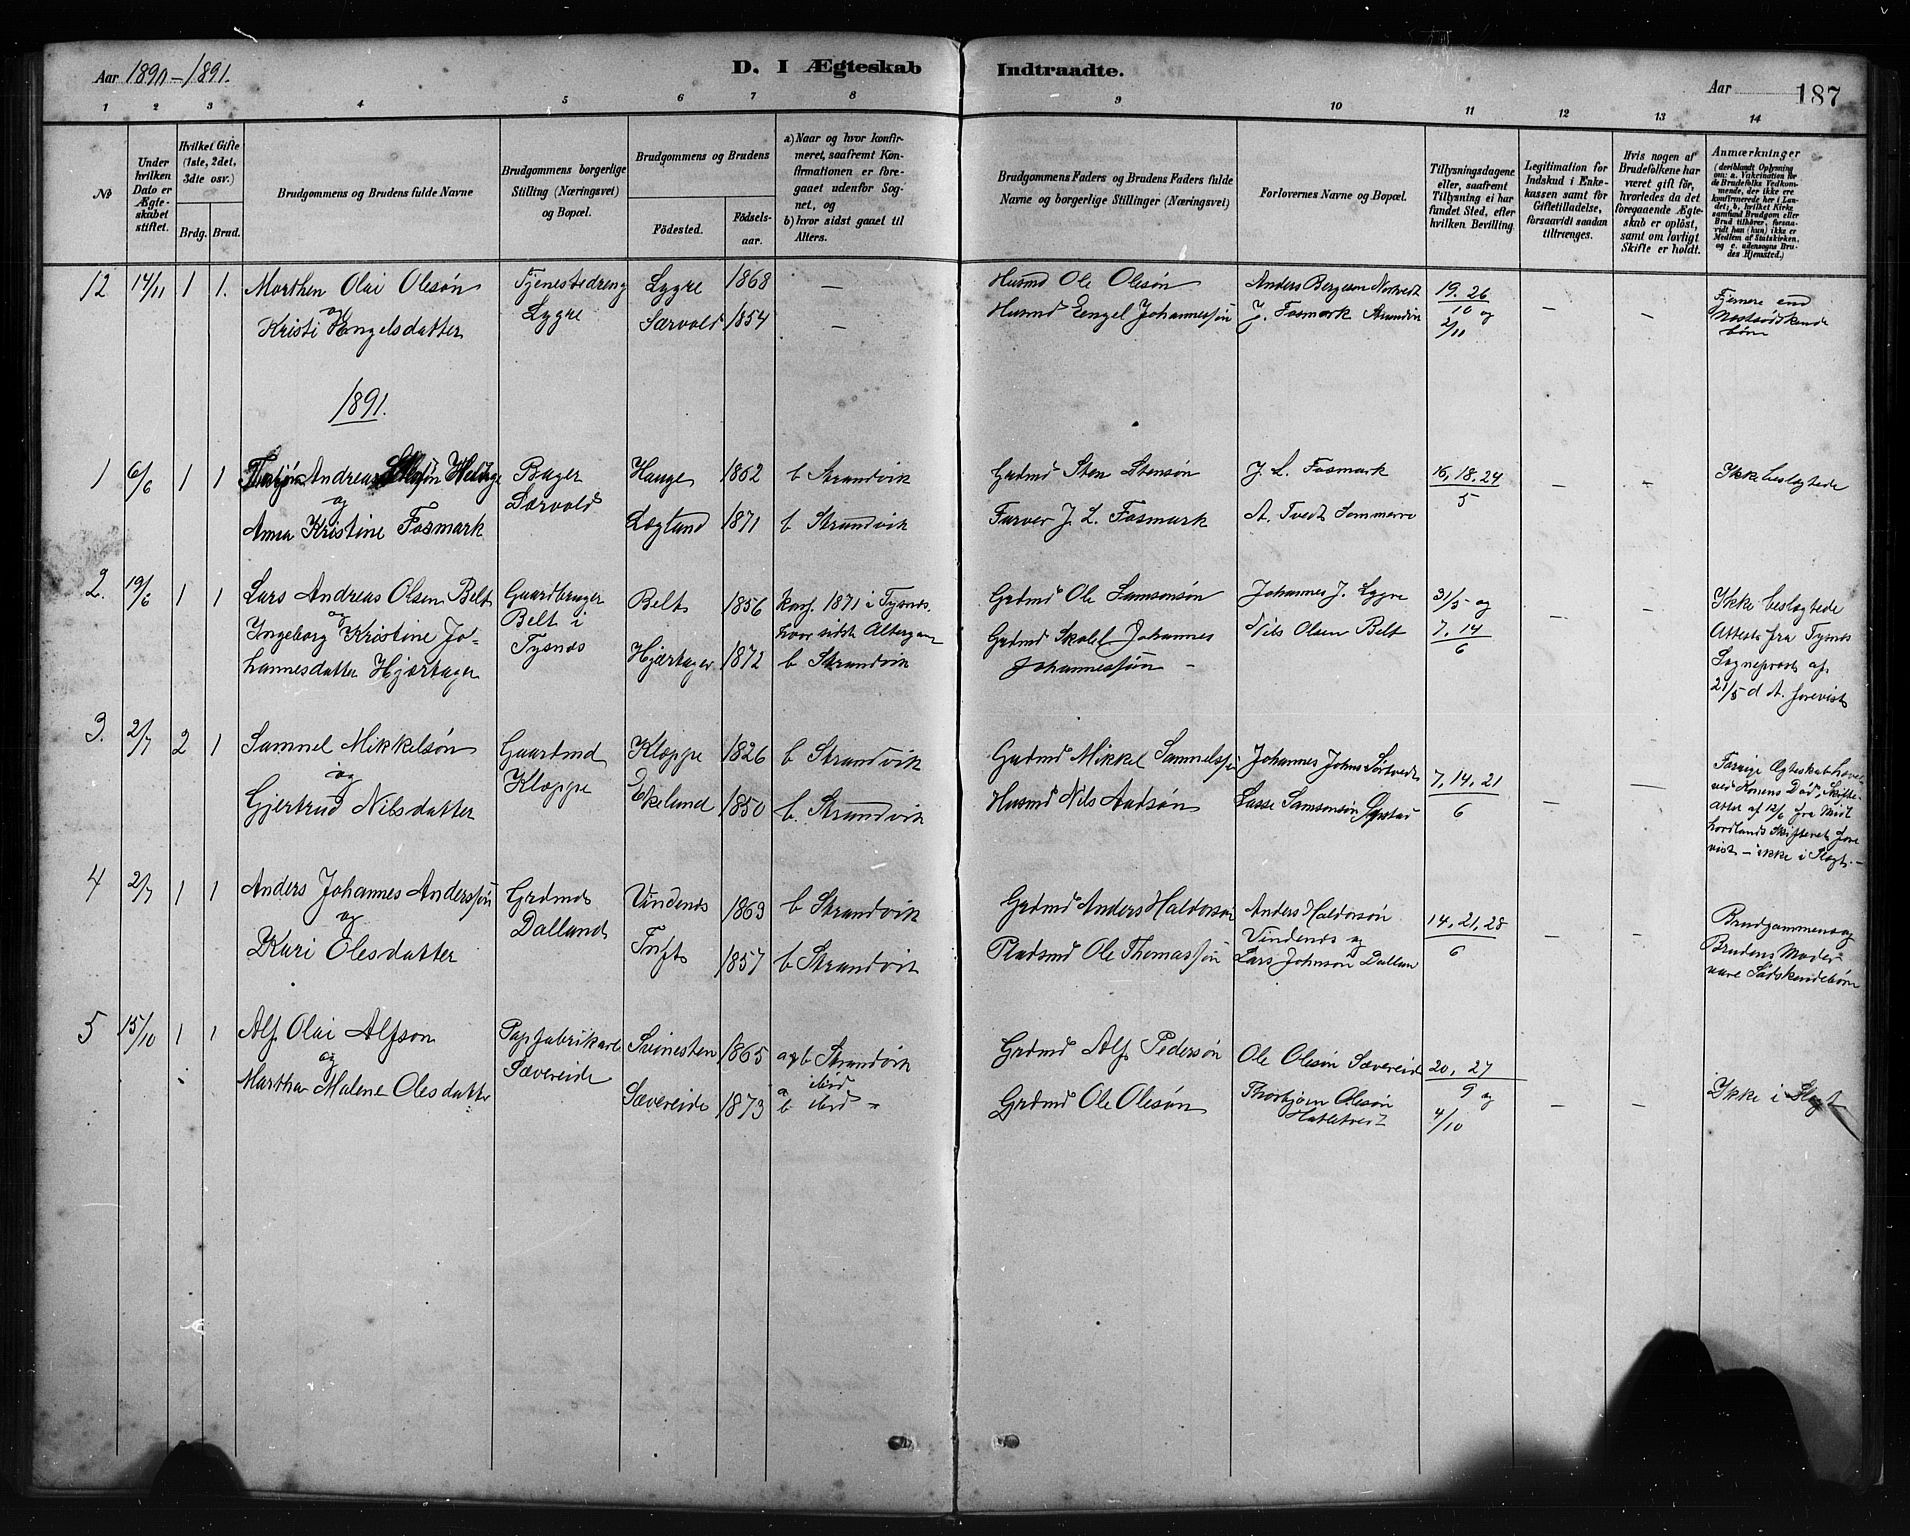 Aar 1890-1891.
D. I Ægteskab Indtraadte.
Aar 187
1 2 3 4 5 6 7 8 9 10 11 12 13 14
No
Under hvilken Dato er Ægteskabet stiftet.
Hvilket Gifte (1ste, 2det, 3die osv.)
Brdg. Brud.
Brudgommens og Brudens fulde Navne
Brudgommens borgerlige Stilling (Næringsvei) og Bopæl.
Brudgommens og Brudens
Fødested.
Fødselsaar.
a) Naar og hvor konfirmeret, saafremt Konfirmationen er foregaaet udenfor Sognet, og
b) hvor sidst gaaet til Alters.
Brudgommens Faders og Brudens Faders fulde Navne og borgerlige Stillinger (Næringsvei)
Forlovernes Navne og Bopæl.
Tillysningsdagene eller, saafremt Tillysning ei har fundet Sted, efter hvilken Bevilling.
Legitimation for Indskud i Enkekassen samt for Giftetilladelse, forsaavidt saadan tiltrænges.
Hvis nogen af Brudefolkene har været gift før, hvorledes da det foregaaende Ægteskab er opløst, samt om lovligt Skifte er holdt.
Anmærkninger
12 14/11 1 1. Marthen Olai Olesøn
og
Kristi Engelsdatter
Tjenestedreng
Lygre
Lygre 1868 —
Særvold 1854 —
Husmd Ole Olesøn
Husmd Engel Johannessøn
Anders Bergesen Nortvedt
J. Fosmark
19. 26
10 og
2/11
— —
Fjernere end
Næstsødskende
børn
1891.
1 6/6 1 1 Andreas
og
Anna Kristine Fosmark
Bager
Særvold
Hauge 1862 b Strandvik
Lægland 1871 b Strandvik
Grdmd Sten Stensøn
Farver J. L. Fosmark
J. L. Fosmark
A. Tvedt
16, 18, 24
5
— —
Ikke beslægtede
2. 19/6 1 1 Lars Andreas Olsen Belt
og
Ingeborg Kristine Jo-
hannesdatter Hjartager
Gaardbruger
Belt i
Tysnes
Belt 1856 Konf. 1871 i Tysnes.
hvor sidst Altergang
Hjartager 1872 b Strandvik
Grdmd Ole Samsonsøn
Grdmd Skolel Johannes
Johannessøn —
Johannes J. Lygre
Nils Olsen Belt
31/5 og
7, 14
6
— —
Ikke beslægtede
Attest fra Tysnes
Sognepræst af
21/5 d A. forevist
3. 2/7 2 1 Samuel Mikkelsøn
og
Gjertrud Nilsdatter
Gaardmd
Kloppe
Kloppe 1826 b Strandvik
Ekelund 1850 b. Strandvik
Grdmd Mikkel Samuelssøn
Husmd Nils Aadsøn
Johannes Johns
Lasse Samsonsøn
7, 14, 21
6
— —
Forrige Ægteskab hævet
ved Konens Død, Skifte-
attest af 12/6 fra Midt
hordlands Skifteret fore
vist — ikke i Slægt. —
4 2/7 1 1 Anders Johannes Anderssøn
og
Kari Olesdatter
Grdmd
Dalland
Vindenes 1863 b Strandvik
Tuft 1857 b Strandvik
Grdmd Anders Haldorsøn
Pladsmd Ole Thomassøn
Anders Haldorsøn
Vindenes og
Lars Johnsøn Dalland
14, 21, 28
6
— —
Brudgommens og
Brudens Mødre
vare Sødskendebørn
5 15/10 1 1 Alf Olai Alfson
og
Martha Malene Olesdatter
Papfabrikarb
Sævereide
Svinesten 1865 a og b Strandvik
ibid
Sævereide 1873 a b ibid
Grdmd Alf Pedersøn
Grdmd Ole Olesøn
Ole Olesøn Sævereide
Thorbjørn Olesøn
Hatletvedt
20, 27
9 og
4/10
— —
Ikke i Slægt